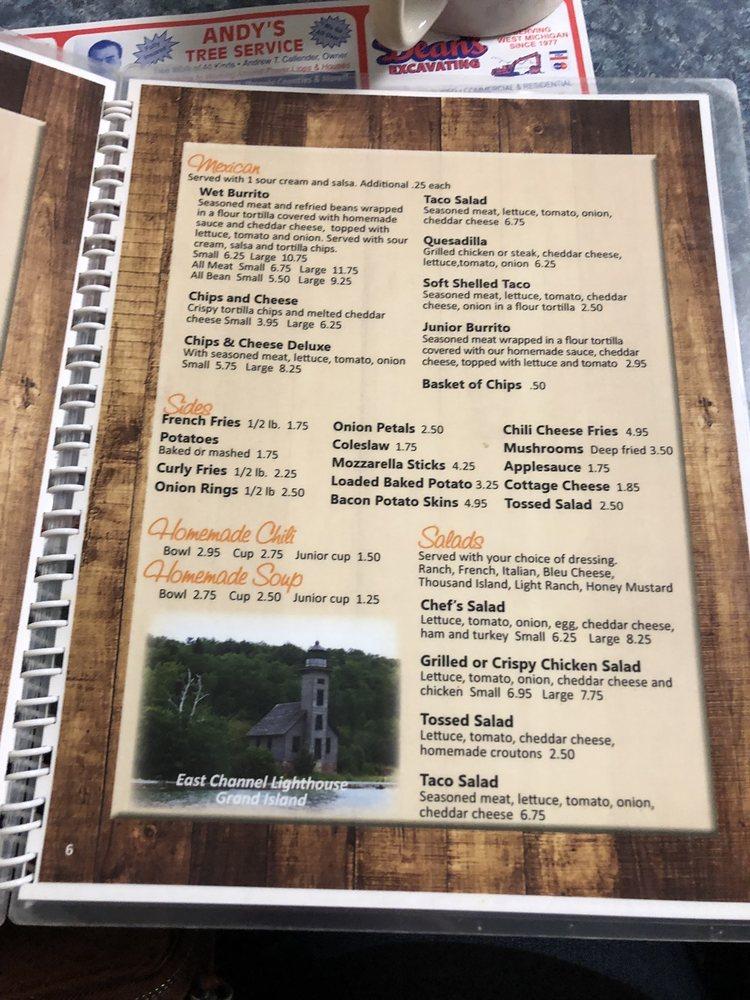 ANDY'S
TREE SERVICE
Tree Work of All Kinds • Andrew T. Callender, Owner
Dean's
EXCAVATING
SERVING
WEST MICHIGAN
SINCE 1977
COMMERCIAL & RESIDENTIAL
Mexican
Served with 1 sour cream and salsa. Additional .25 each
Wet Burrito
Seasoned meat and refried beans wrapped
in a flour tortilla covered with homemade
sauce and cheddar cheese, topped with
lettuce, tomato and onion. Served with sour
cream, salsa and tortilla chips.
Small 6.25 Large 10.75
All Meat Small 6.75 Large 11.75
All Bean Small 5.50 Large 9.25
Chips and Cheese
Crispy tortilla chips and melted cheddar
cheese Small 3.95 Large 6.25
Chips & Cheese Deluxe
With seasoned meat, lettuce, tomato, onion
Small 5.75 Large 8.25
Taco Salad
Seasoned meat, lettuce, tomato, onion,
cheddar cheese 6.75
Quesadilla
Grilled chicken or steak, cheddar cheese,
lettuce,tomato, onion 6.25
Soft Shelled Taco
Seasoned meat, lettuce, tomato, cheddar
cheese, onion in a flour tortilla 2.50
Junior Burrito
Seasoned meat wrapped in a flour tortilla
covered with our homemade sauce, cheddar
cheese, topped with lettuce and tomato 2.95
Basket of Chips .50
Sides
French Fries 1/2 lb. 1.75
Potatoes
Baked or mashed 1.75
Curly Fries 1/2 lb. 2.25
Onion Rings 1/2 lb 2.50
Onion Petals 2.50
Coleslaw 1.75
Mozzarella Sticks 4.25
Loaded Baked Potato 3.25
Bacon Potato Skins 4.95
Chili Cheese Fries 4.95
Mushrooms Deep fried 3.50
Applesauce 1.75
Cottage Cheese 1.85
Tossed Salad 2.50
Homemade Chili
Bowl 2.95 Cup 2.75 Junior cup 1.50
Homemade Soup
Bowl 2.75 Cup 2.50 Junior cup 1.25
East Channel Lighthouse
Grand Island
Salads
Served with your choice of dressing.
Ranch, French, Italian, Bleu Cheese,
Thousand Island, Light Ranch, Honey Mustard
Chef's Salad
Lettuce, tomato, onion, egg, cheddar cheese,
ham and turkey Small 6.25 Large 8.25
Grilled or Crispy Chicken Salad
Lettuce, tomato, onion, cheddar cheese and
chicken Small 6.95 Large 7.75
Tossed Salad
Lettuce, tomato, cheddar cheese,
homemade croutons 2.50
Taco Salad
Seasoned meat, lettuce, tomato, onion,
cheddar cheese 6.75
6